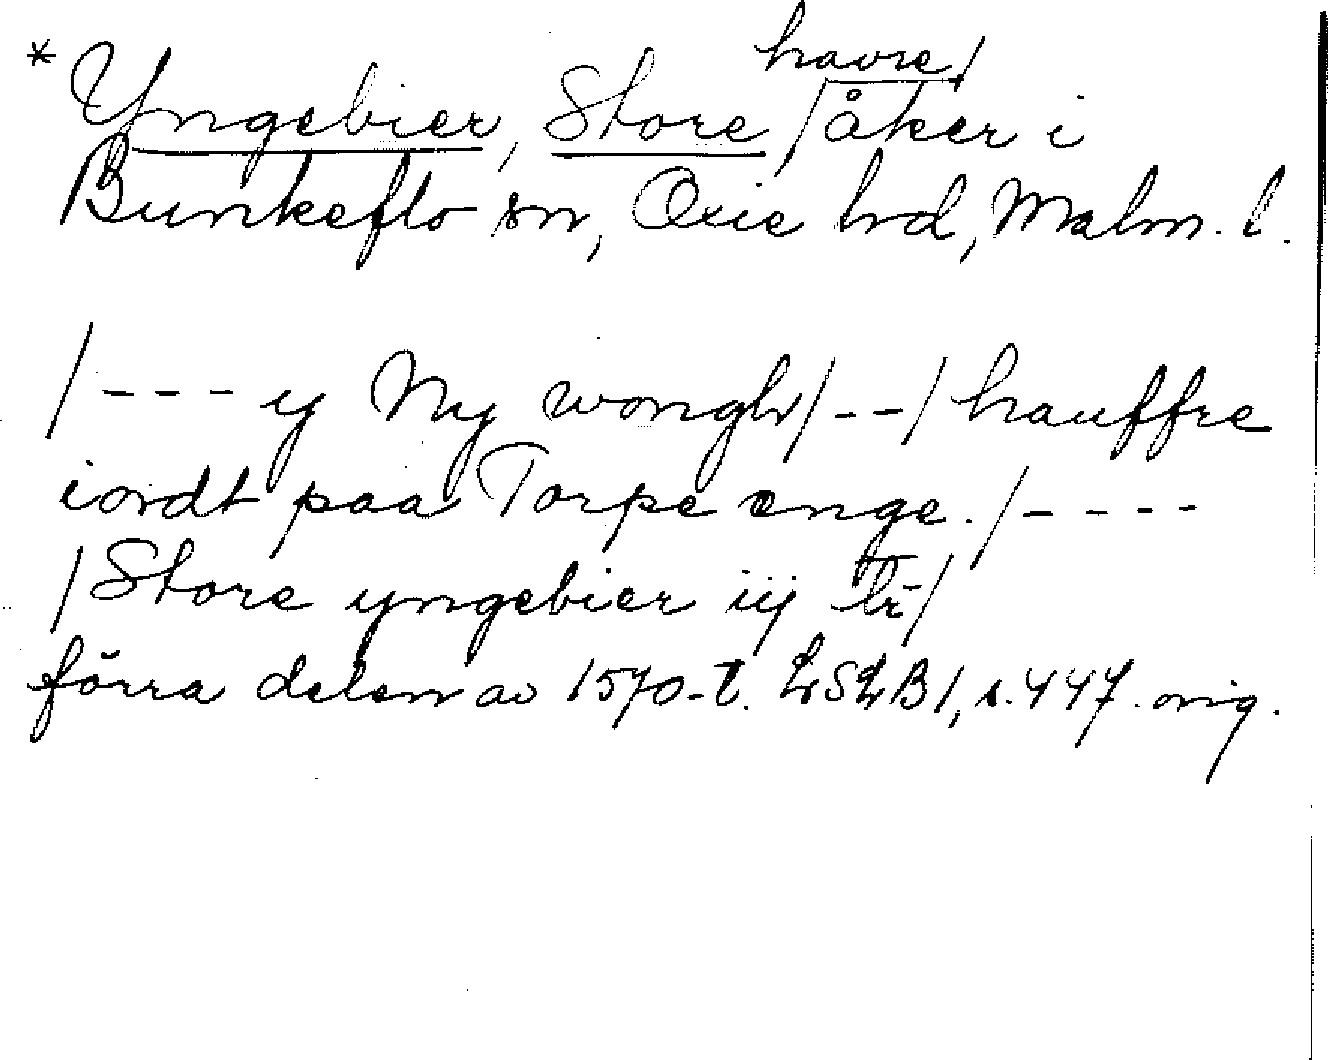 * Yngebier, Store /havre/åker i
Bunkeflo sn, Oxie hd, Malm. l.
/--- y Ny wongh/--/hauffre
iordt paa Torpe enge./----
/Store yngebier iij /
förra delen av 1570-t. LSLB1, s. 447. orig.